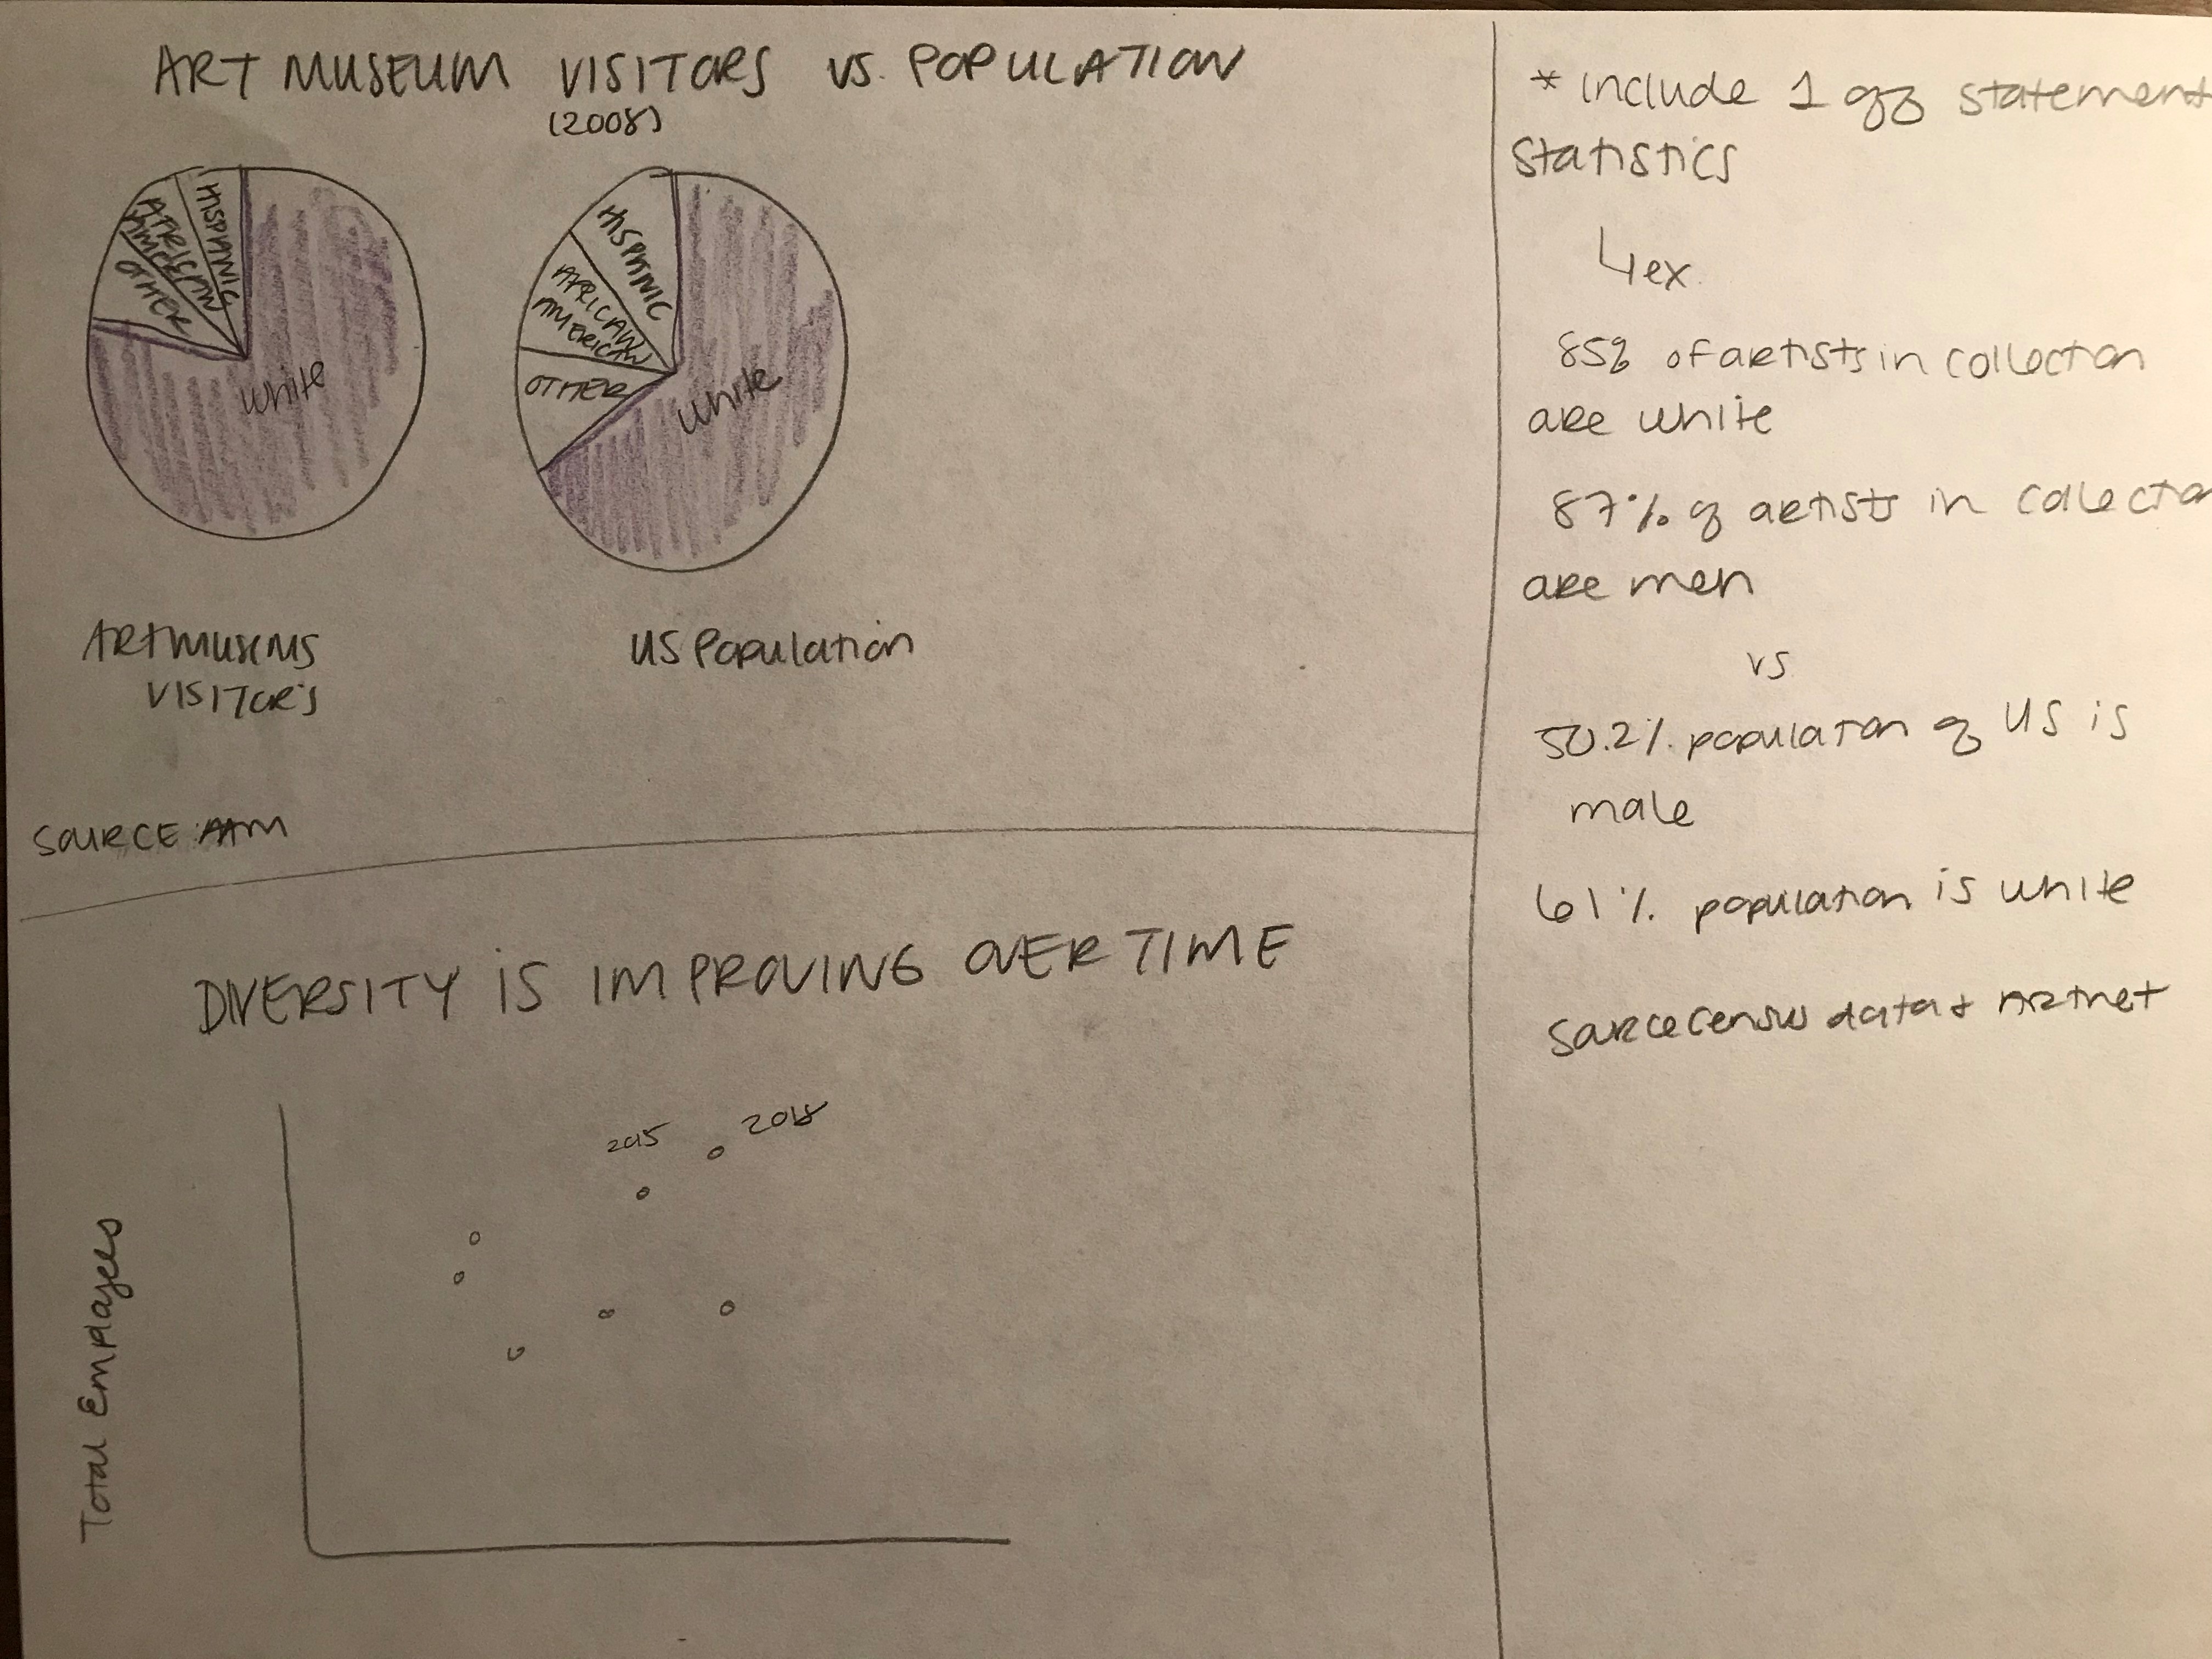 ART MUSEUM VISITORS VS. POPULATION
(2008)
HISPANIC
AFRICAN
AMERICAN
OTHER
white
HISPANIC
AFRICAN
AMERICAN
OTHER
white
ART MUSEMS
VISITORS
US Population
SOURCE: AAM
DIVERSITY IS IMPROVING OVER TIME
2015
2018
Total Employees
* include 1 statement
statistics
ex.
85% of artists in collection
are white
87% of artists in collection
are men
vs
50.2% population of US is
male
61% population is white
Source census data + Artnet